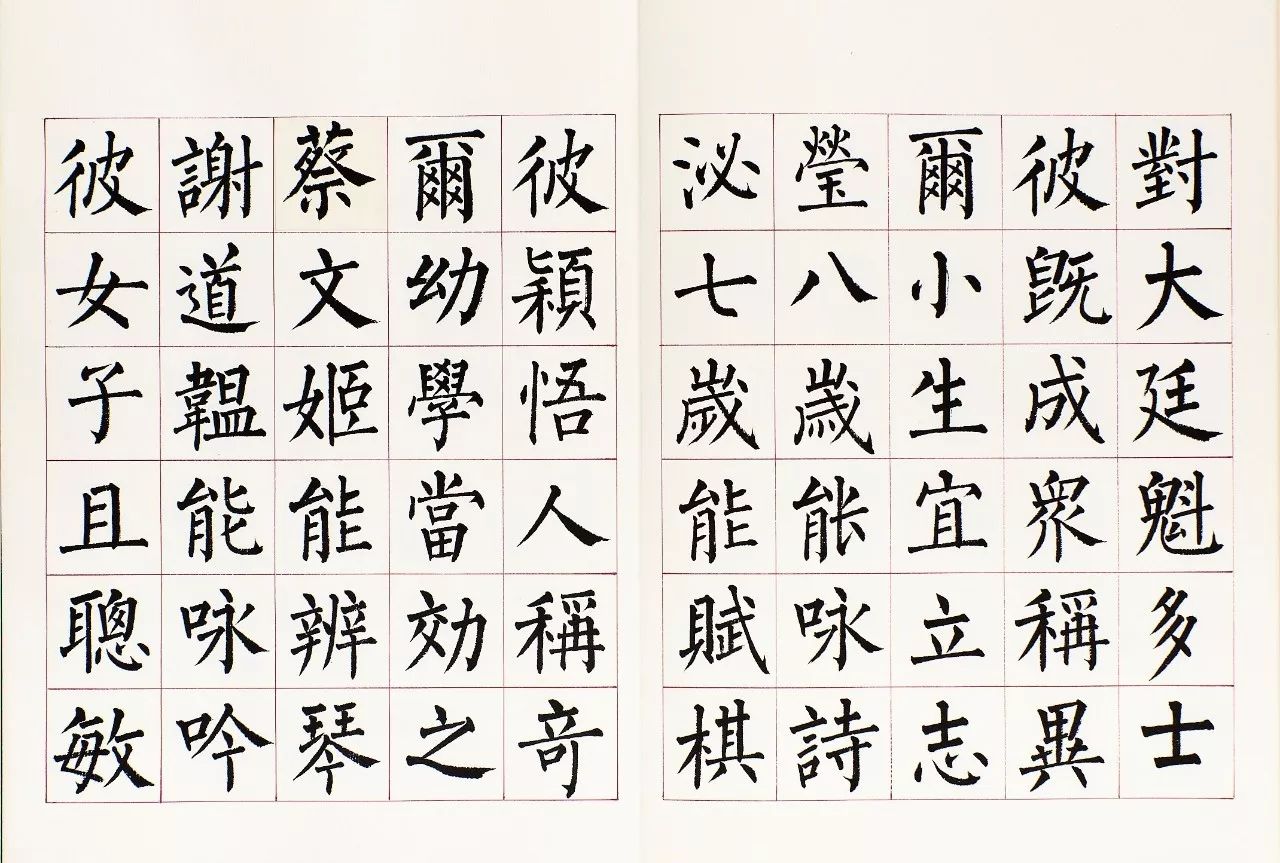 對大廷魁多士
彼既成衆稱異
爾小生宜立志
瑩八歲能咏詩
泌七歲能賦棋
彼穎悟人稱奇
爾幼學當効之
蔡文姬能辨琴
謝道韞能咏吟
彼女子且聰敏